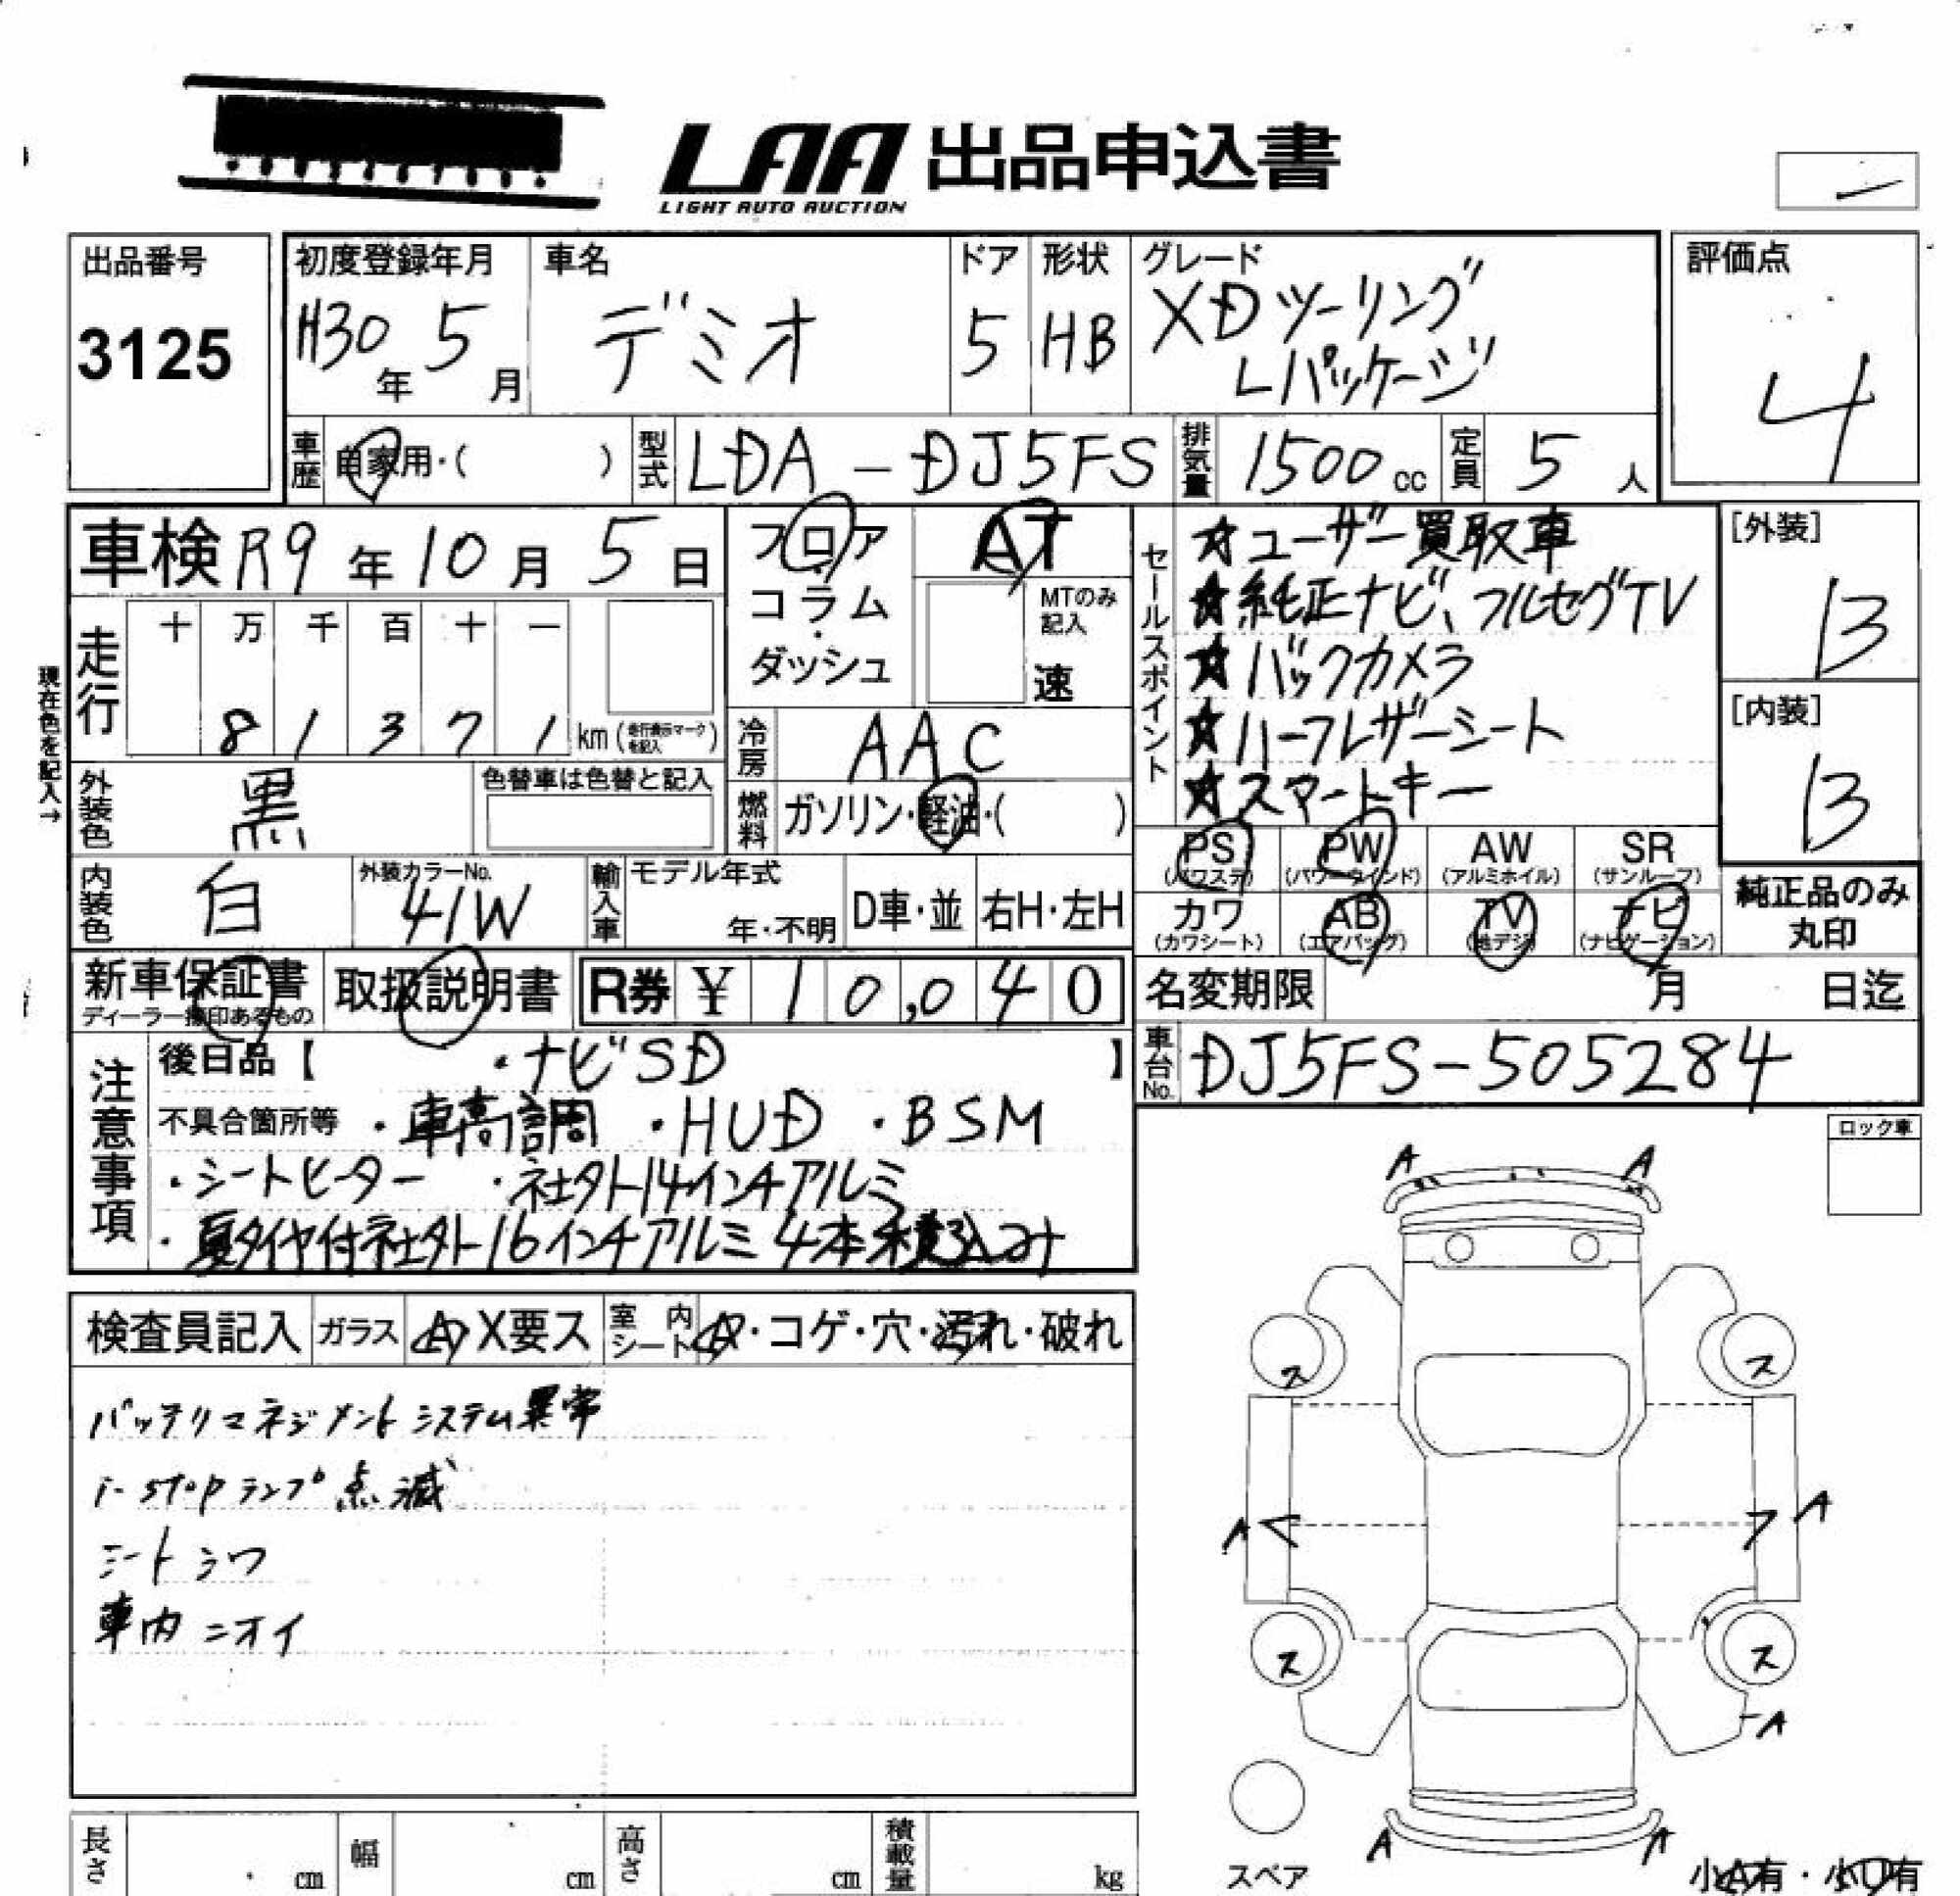 LAA 出品申込書
LIGHT AUTO AUCTION
出品番号
3125
初度登録年月
H30年 5月
車名
デミオ
ドア
5
形状
HB
グレード
XDツーリング
Lパッケージ
評価点
4
車歴 自家用・( )
型式 LDA-DJ5FS
排気量 1500cc
定員 5人
車検 R9年10月5日
フロア・コラム・ダッシュ
AT
MTのみ記入
速
走行 十 万 千 百 十 一
8 1 3 7 1 km (走行表示マークを記入)
現在色を記入→
冷房 AAC
外装色 黒
色替車は色替と記入
燃料 ガソリン・軽油・( )
内装色 白
外装カラーNo. 41W
輸入車 モデル年式
年・不明
D車・並
右H・左H
セールスポイント
★ユーザー買取車
★純正ナビ、フルセグTV
★バックカメラ
★ハーフレザーシート
★スマートキー
[外装]
B
[内装]
B
PS (パワステ)
PW (パワーウインド)
AW (アルミホイル)
SR (サンルーフ)
カワ (カワシート)
AB (エアバッグ)
TV (地デジ)
ナビ (ナビゲーション)
純正品のみ丸印
新車保証書
ディーラー捺印あるもの
取扱説明書
R券 ¥ 10,040
名変期限 月 日迄
車台No. DJ5FS-505284
注意事項
後日品【 ・ナビSD 】
不具合箇所等 ・車高調 ・HUD ・BSM
・シートヒーター ・社外14インチアルミ
・夏タイヤ付社外16インチアルミ4本積込み
ロック車
検査員記入 ガラス A X要ス 室内シート A・コゲ・穴・汚れ・破れ
バッテリマネジメントシステム異常
i-stopランプ点滅
シートシワ
車内ニオイ
A A
ス ス
A A
ス ス
A
A A
スペア
小A有・小U有
長さ cm
幅 cm
高さ cm
積載量 kg